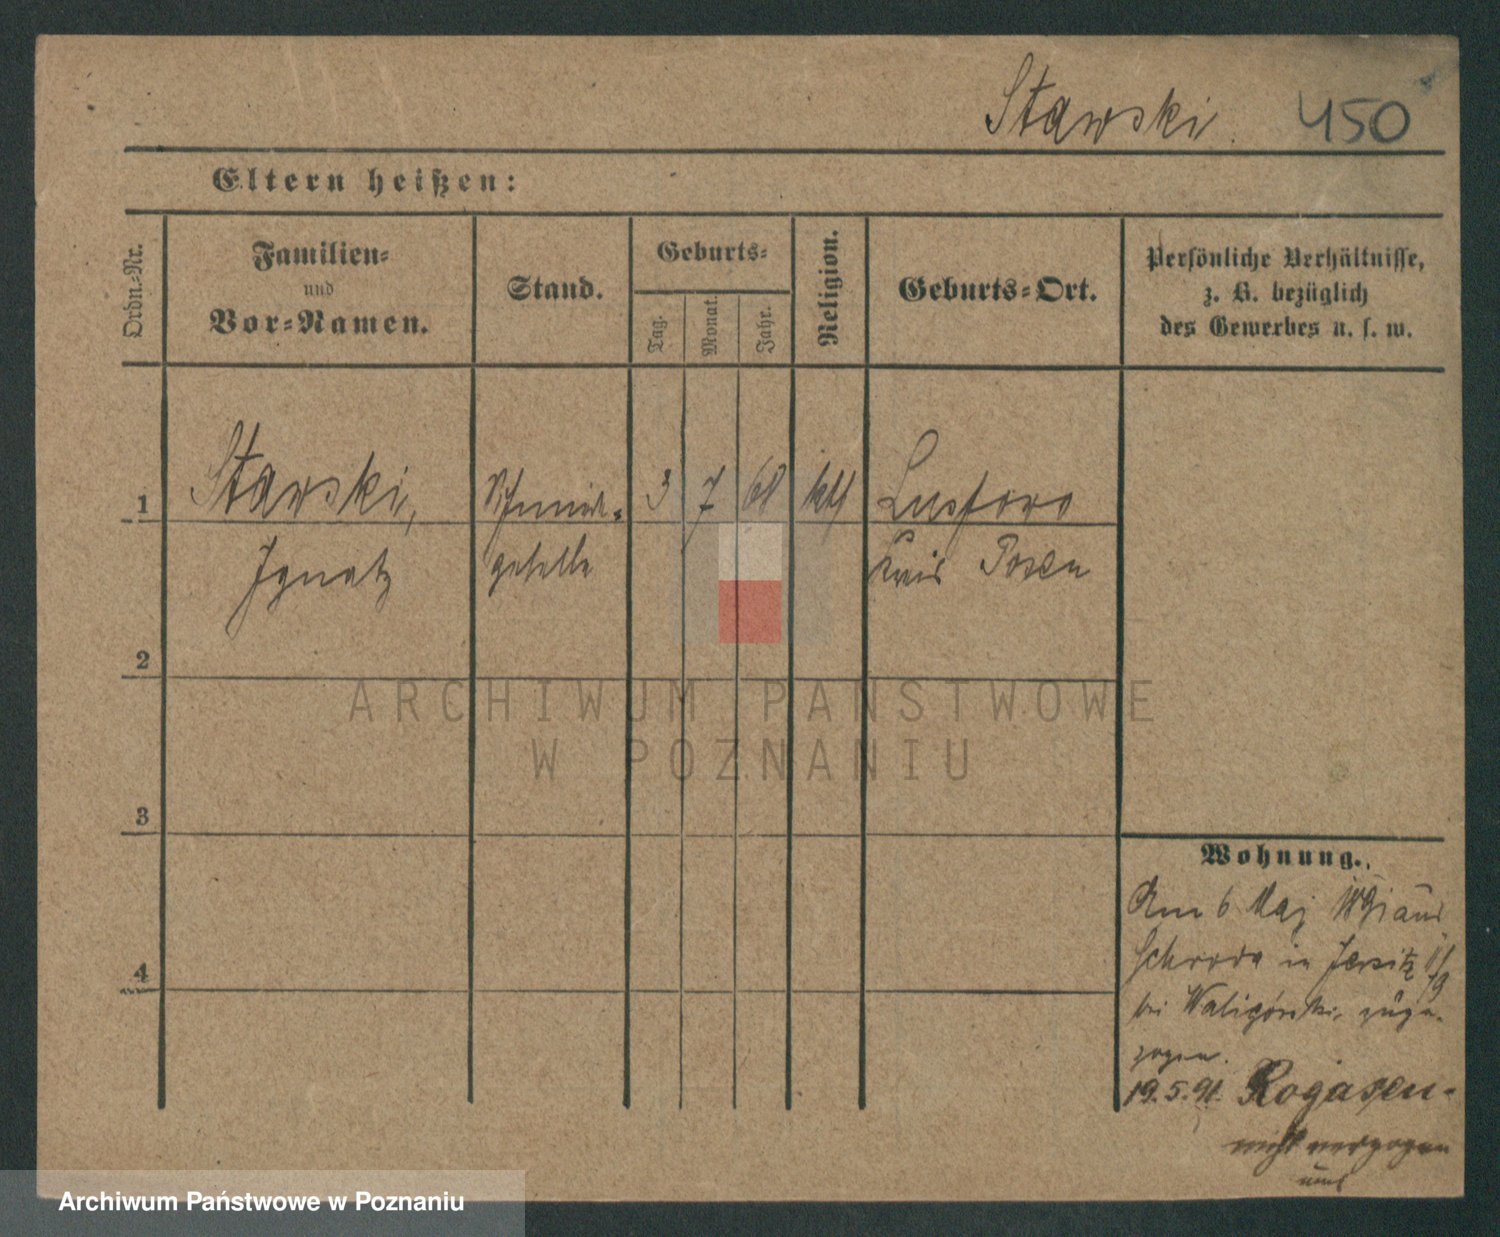 Stawski. 450
Eltern heißen:
Ordn.-Nr.
Familien-
und
Vor-Namen.
Stand.
Geburts-
Tag.
Monat.
Jahr.
Religion.
Geburts-Ort.
Persönliche Verhältnisse,
z. B. bezüglich
des Gewerbes u. s. w.
1 Stawski, Schmiede- 3 7 68 kth
Ignatz geselle Kreis Posen
2
ARCHIWUM PAŃSTWOWE
W POZNANIU
3
4
Wohnung.
Am 6 Maj aus
Schroda in Jersitz
bei Waligórski, zuge-
zogen.
19.5.91. Rogasen
nicht verzogen
Archiwum Państwowe w Poznaniu